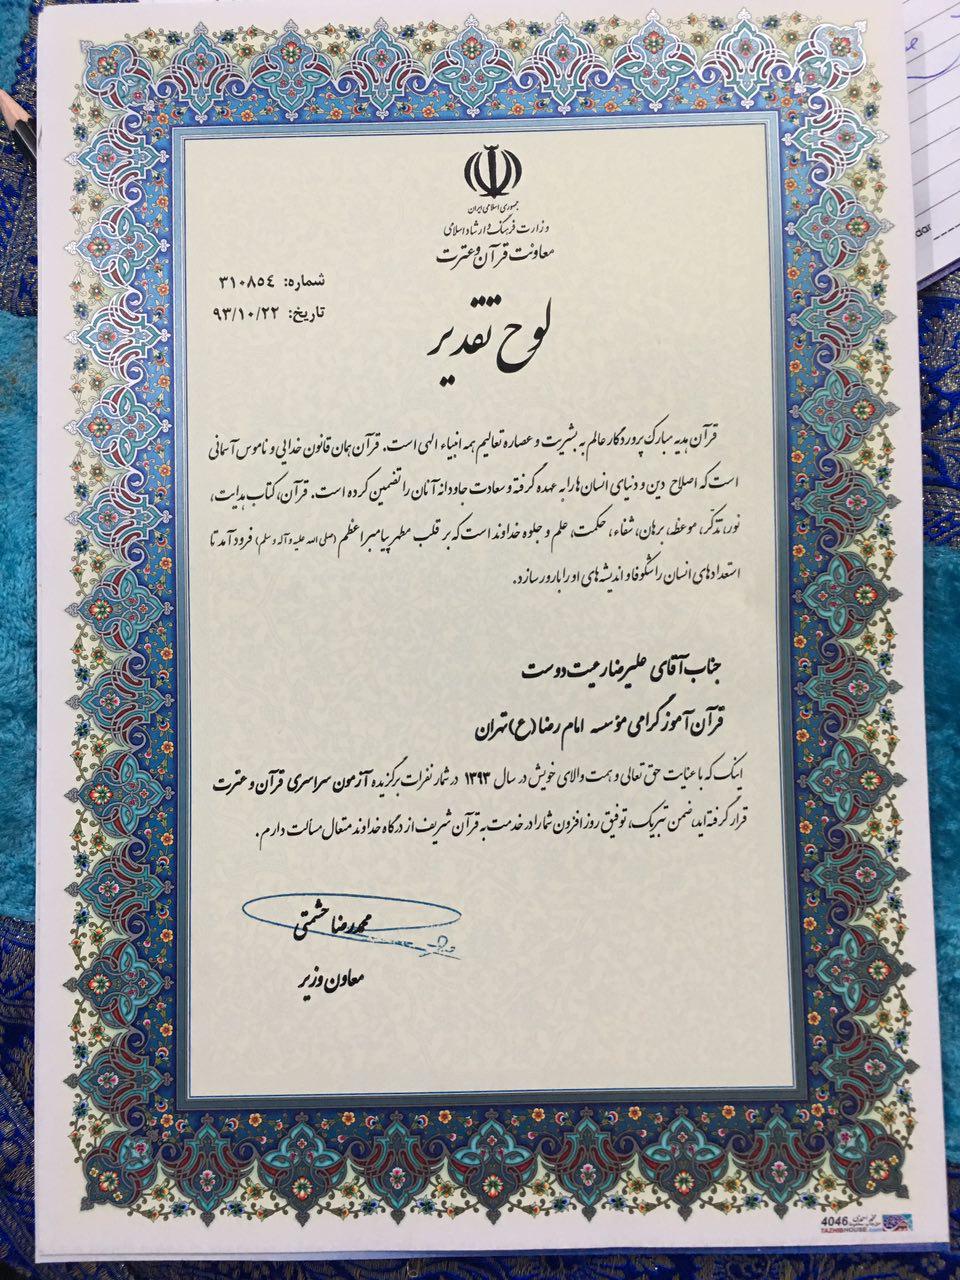 جمهوری اسلامی ایران
وزارت فرهنگ و ارشاد اسلامی
معاونت قرآن و عترت
شماره: ۳۱۰۸۵۴
تاریخ: ۹۳/۱۰/۲۲
لوح تقدیر
قرآن هدیه مبارک پروردگار عالم به بشریت و عصاره تعالیم همه انبیاء الهی است. قرآن همان قانون خدایی و ناموس آسمانی
است که اصلاح دین و دنیای انسان ها را به عهده گرفته و سعادت جاودانه آنان را تضمین کرده است. قرآن، کتاب هدایت،
نور، تذکّر، موعظه، برهان، شفاء، حکمت، علم و جلوه خداوند است که بر قلب مطهر پیامبر اعظم (صلی الله علیه و آله و سلم) فرود آمد تا
استعدادهای انسان را شکوفا و اندیشه های او را بارور سازد.
جناب آقای علیرضا رعیت دوست
قرآن آموز گرامی مؤسسه امام رضا (ع) تهران
اینک که با عنایت حق تعالی و همت والای خویش در سال ۱۳۹۳ در شمار نفرات برگزیده آزمون سراسری قرآن و عترت
قرار گرفته اید، ضمن تبریک، توفیق روز افزون شما را در خدمت به قرآن شریف از درگاه خداوند متعال مسألت دارم.
محمدرضا حشمتی
معاون وزیر
4046
TAZHIBHOUSE.com